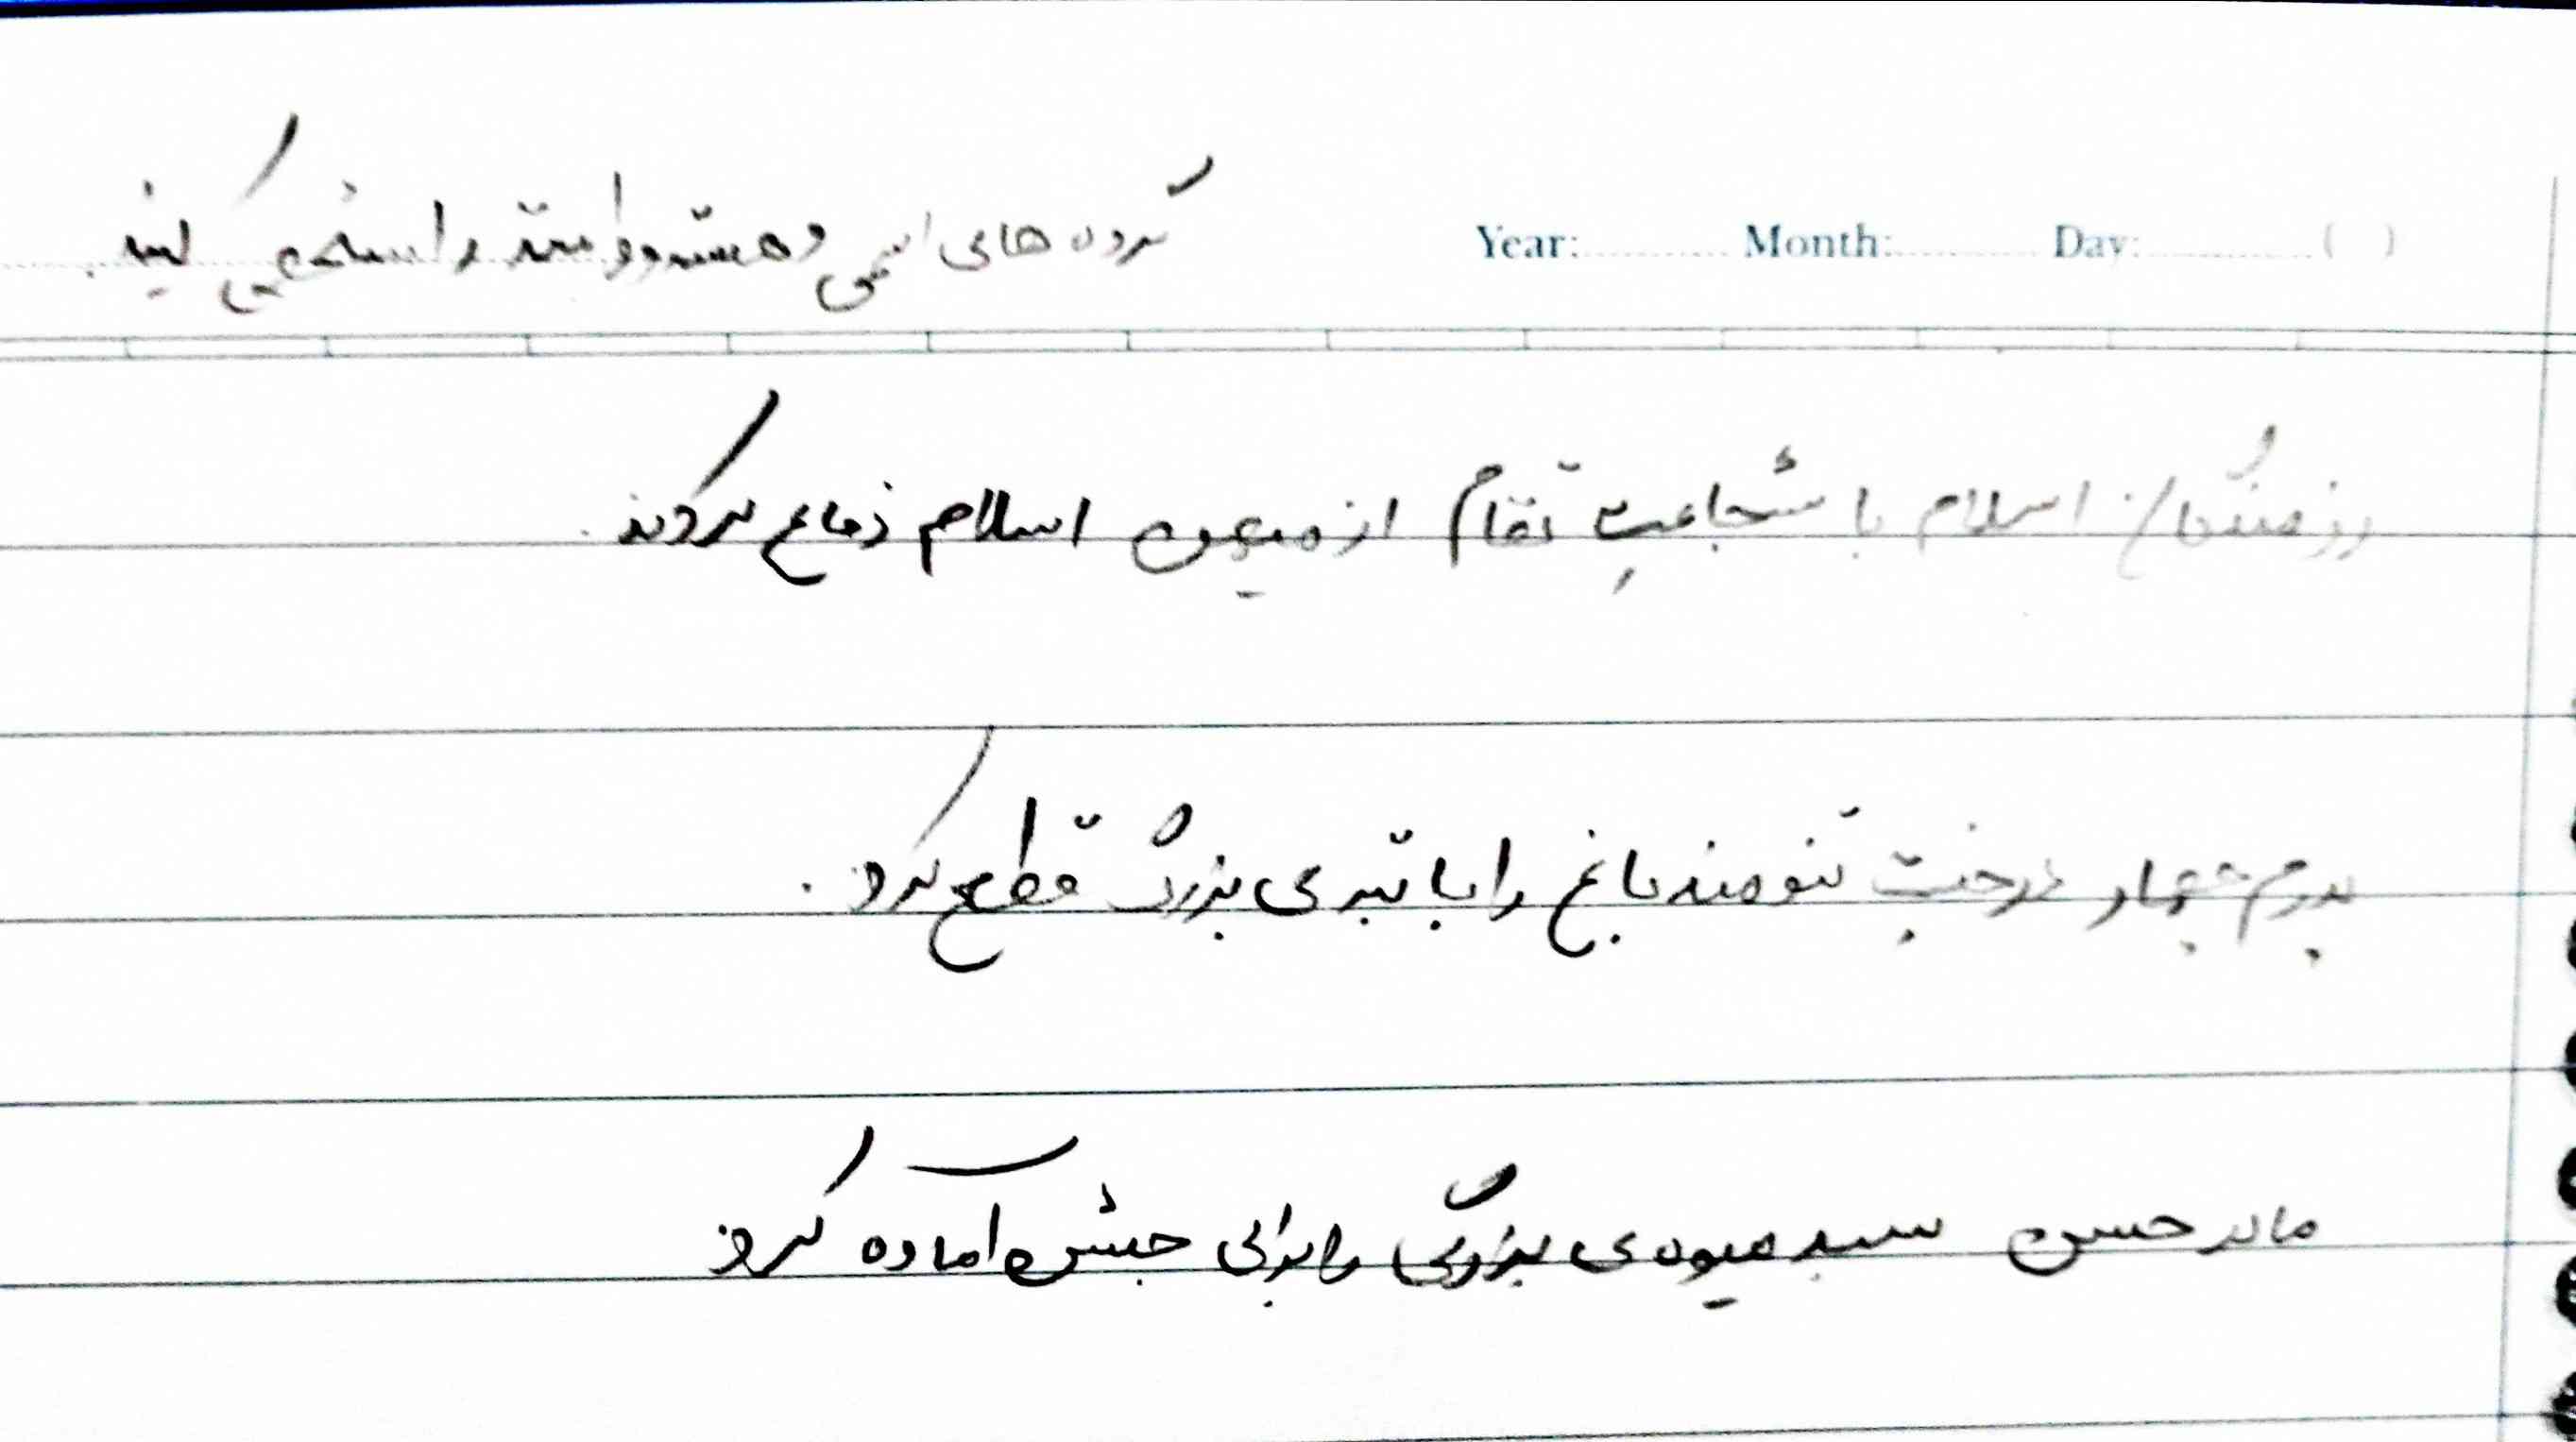 گروه های اسمی و هسته و وابسته را مشخص کنید.
Year: Month: Day: ( )
رزمندگان اسلام با شجاعتِ تمام از میهن اسلام دفاع کردند.
پدرم چهار درختِ تنومند باغ را با تبری بزرگ قطع کرد.
مادر حسن سبد میوه‌ی بزرگی را برای جشن آماده کرد